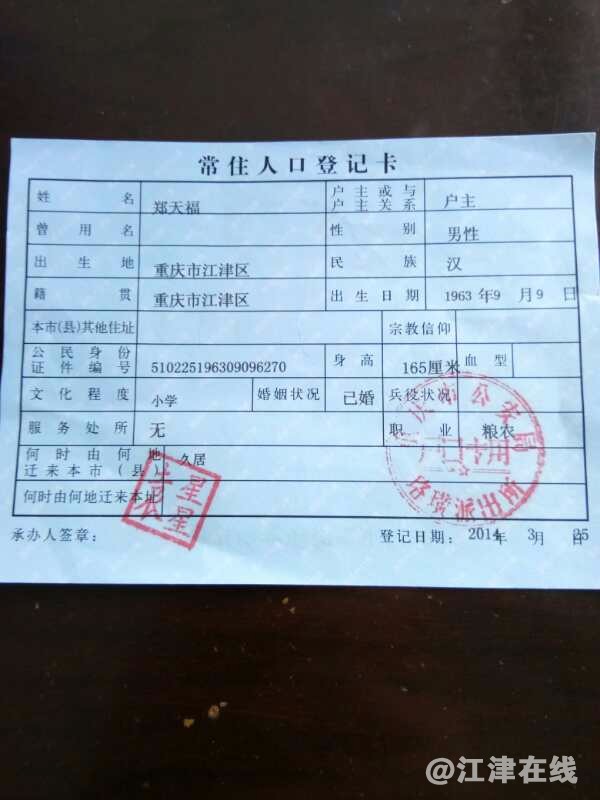 常住人口登记卡
姓名 郑天福 户主或与户主关系 户主
曾用名 性别 男性
出生地 重庆市江津区 民族 汉
籍贯 重庆市江津区 出生日期 1963年9月9日
本市(县)其他住址 宗教信仰
公民身份证件编号 510225196309096270 身高 165厘米 血型
文化程度 小学 婚姻状况 已婚 兵役状况
服务处所 无 职业 粮农
何时由何地迁来本市(县) 久居
何时由何地迁来本址
星星
公安局
户口专用
珞璜派出所
承办人签章: 登记日期: 2014年3月25日
@江津在线